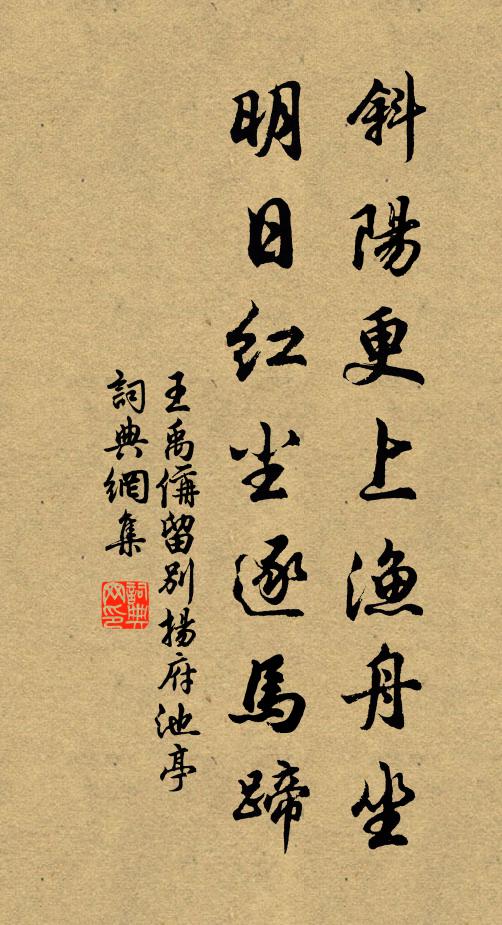 斜陽更上漁舟坐
明日紅尘逐馬蹄
王禹偁留别揚府池亭
詞典網集
詞典网印